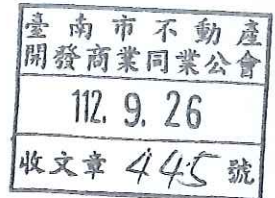 臺南市不動產
開發商業同業公會
112. 9. 26
收文章 445 號